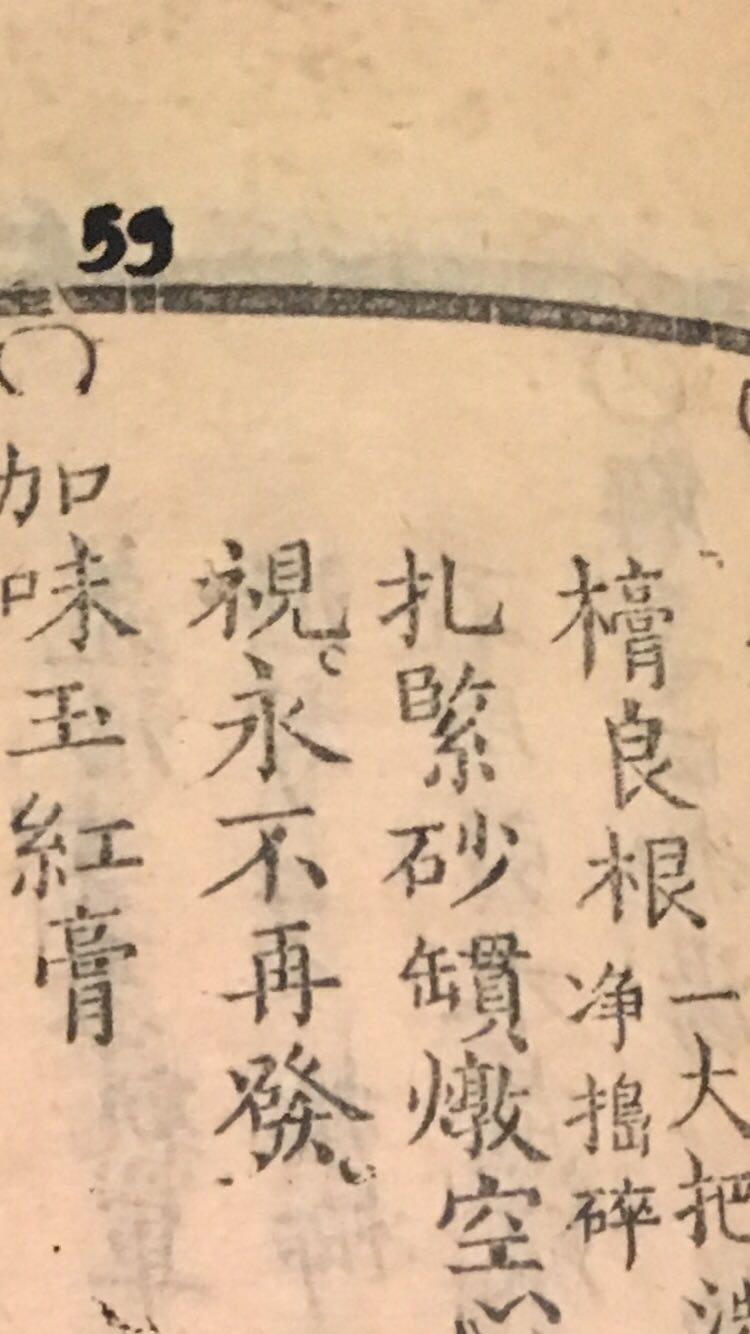 59
檺良根
一大把洗
净搗碎
扎緊砂罆燉空心
視。永不再發。
〇加味玉紅膏